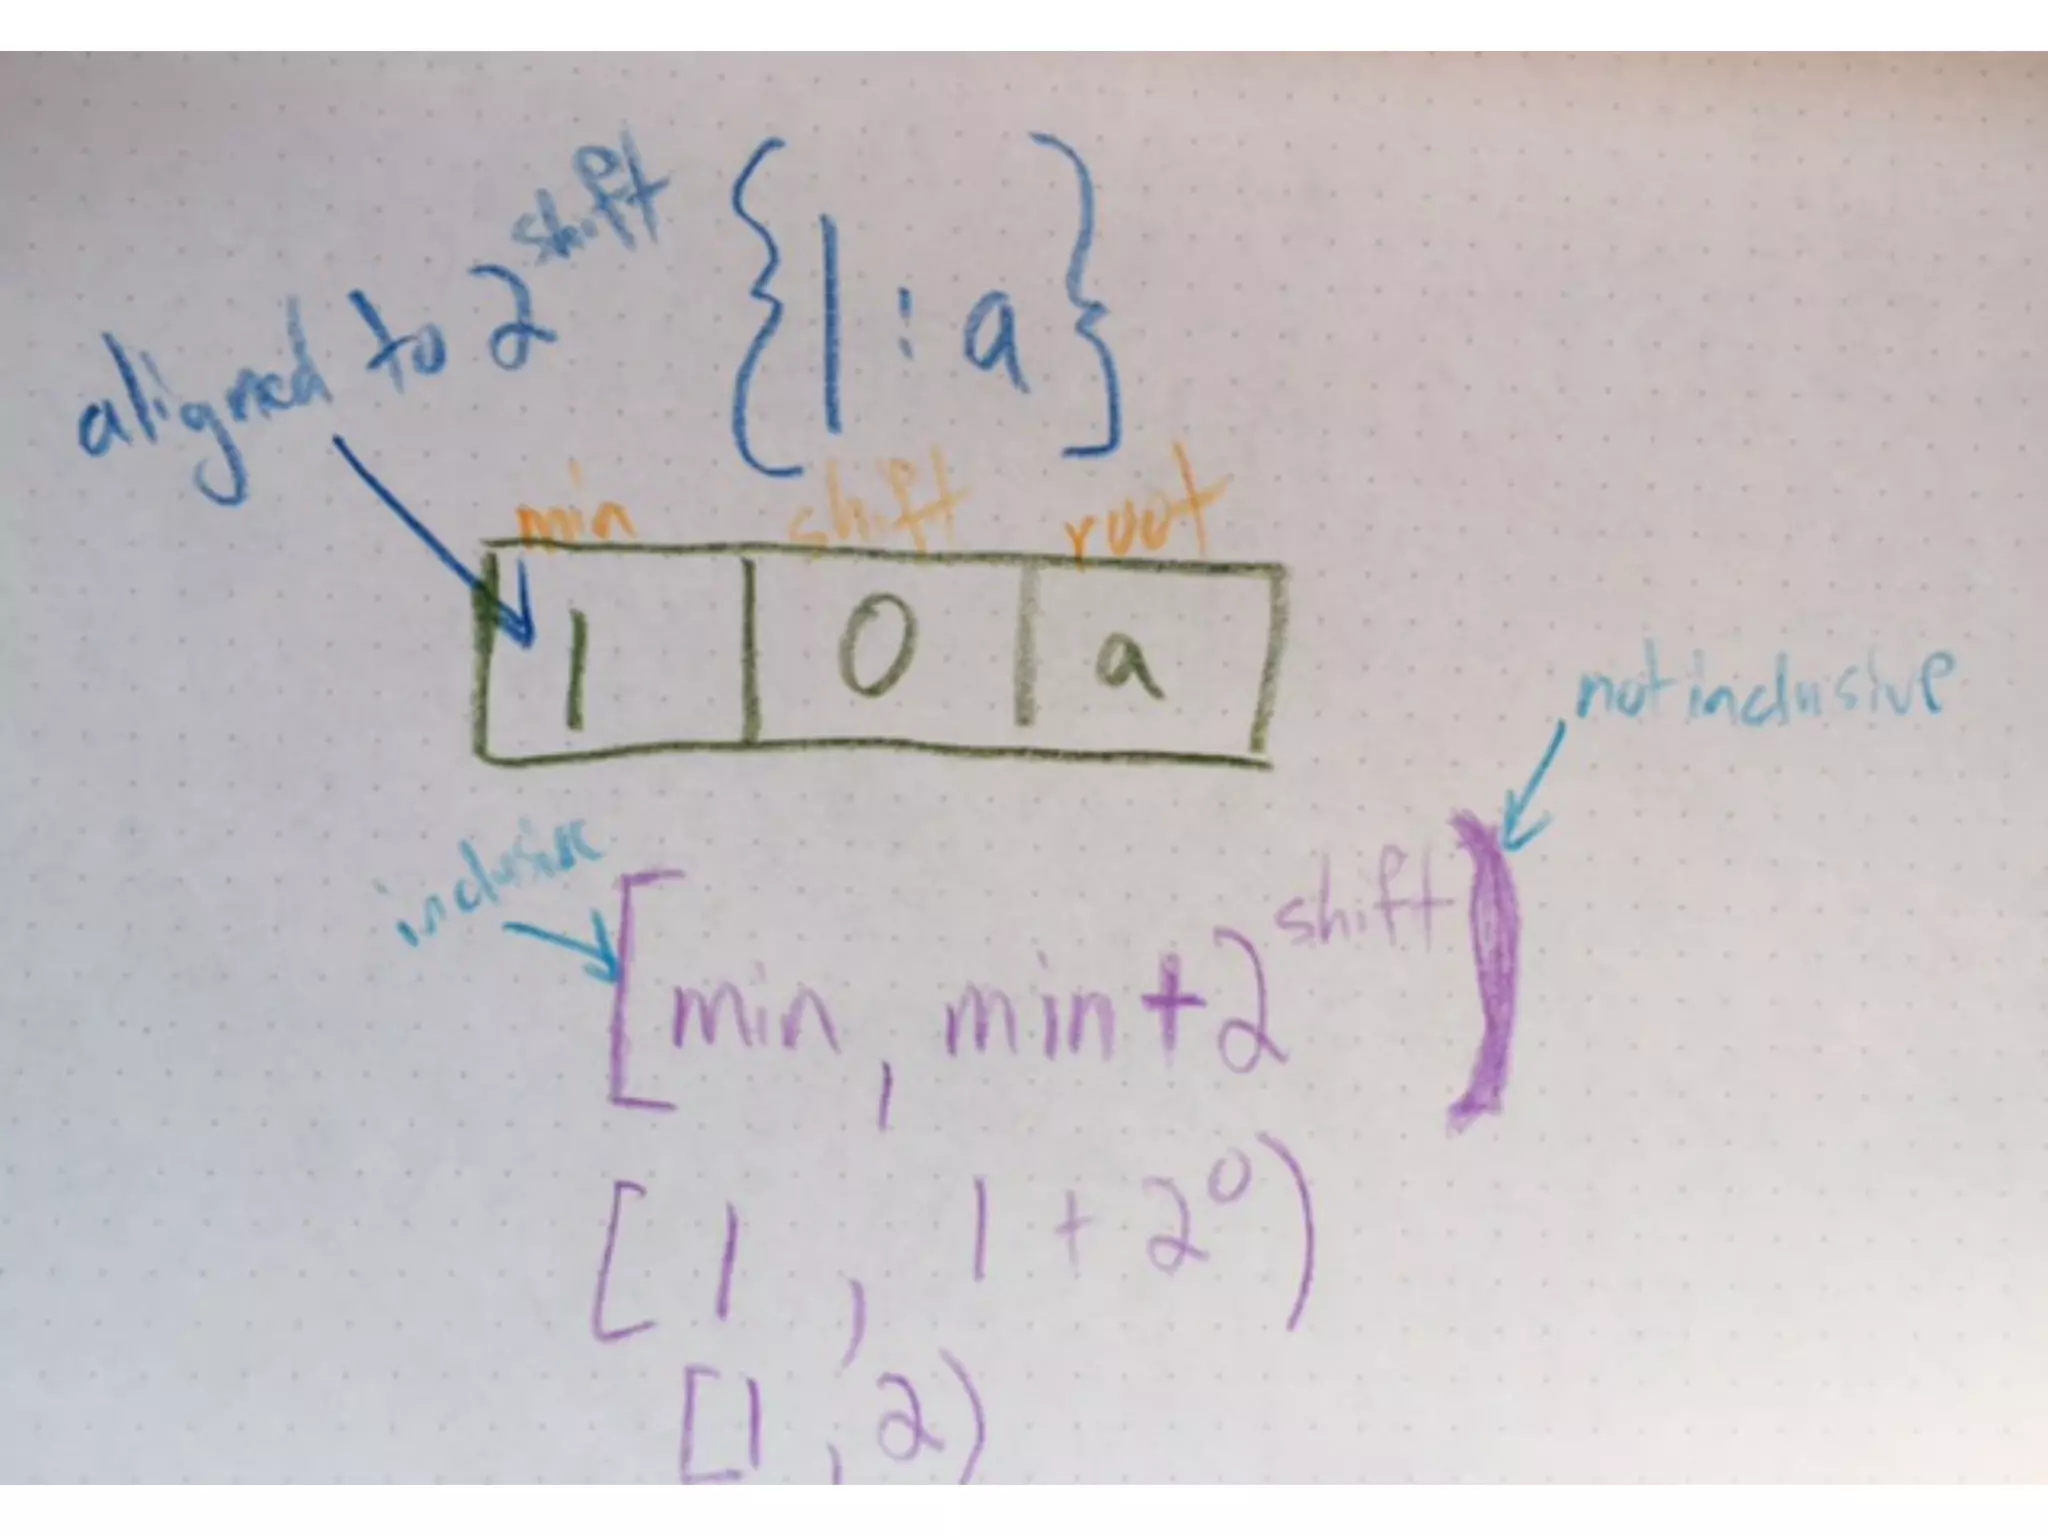 aligned to 2^shift {1:a}
min shift root
1 0 a
not inclusive
inclusive
[min, min+2^shift)
[1, 1+2^0)
[1, 2)